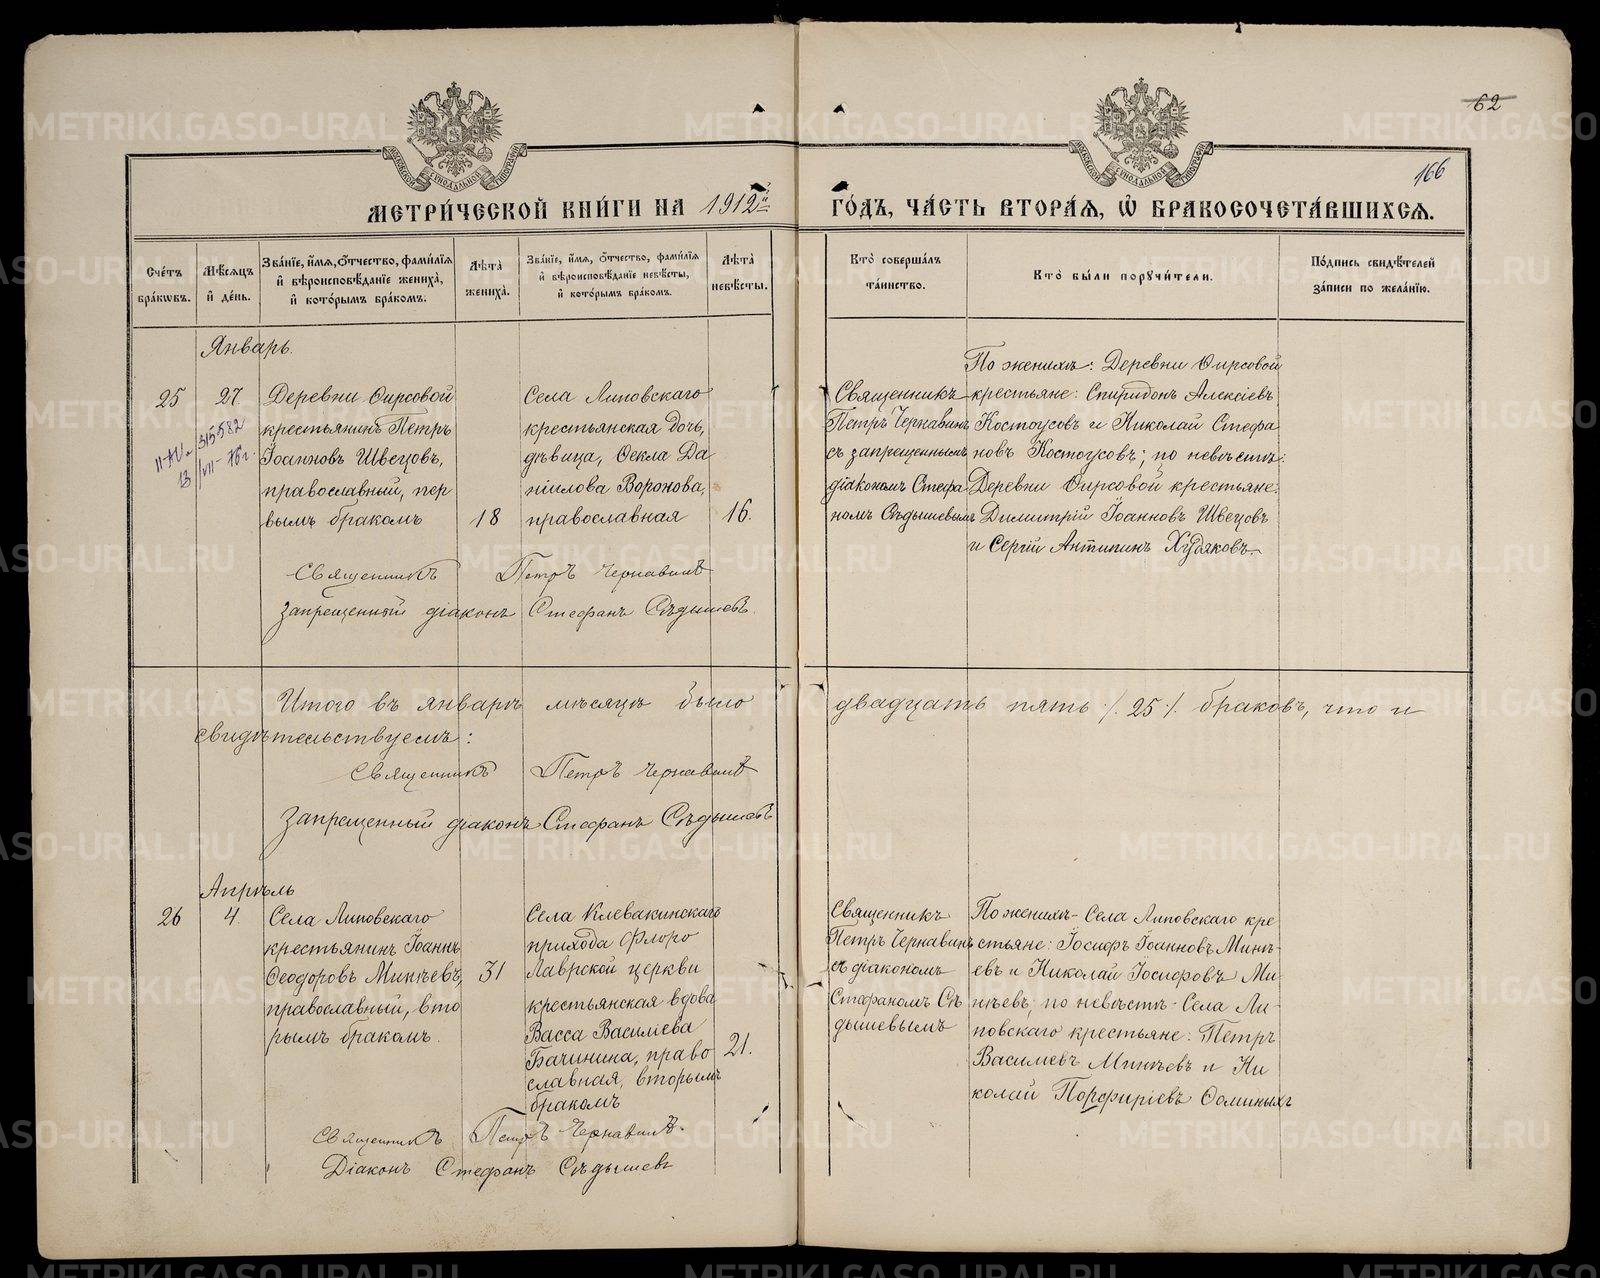 62
166
МОСКОВСКОЙ СУНОДАЛЬНОЙ ТИПОГРАФІИ
МОСКОВСКОЙ СУНОДАЛЬНОЙ ТИПОГРАФІИ
МЕТРИ́ЧЕСКОЙ КНИ́ГИ НА 1912й
ГО́ДЪ, ЧА́СТЬ ВТОРА́Я, Ѡ БРАКОСОЧЕТА́ВШИХСЯ.
Сче́тъ бра́ковъ.
Мѣ́сяцъ и де́нь.
Зва́ніе, и́мя, о́тчество, фами́лія
и вѣроисповѣ́даніе жениха̀,
и кото́рымъ бра́комъ.
Лѣта̀ жениха̀.
Зва́ніе, и́мя, о́тчество, фами́лія
и вѣроисповѣ́даніе невѣ́сты,
и кото́рымъ бра́комъ.
Лѣта̀ невѣ́сты.
Кто̀ соверша́лъ
та́инство.
Кто̀ бы́ли поручи́тели.
По́дпись свидѣ́телей
за́писи по жела́нію.
Январь.
25
27
Деревни Ѳирсовой
крестьянинъ Петръ
Іоанновъ Швецовъ,
православный, пер
вымъ бракомъ
18
Села Липовскаго
крестьянская дочь,
дѣвица, Ѳекла Да
ніилова Воронова,
православная
16.
Священникъ
Петръ Чернавинъ
съ запрещеннымъ
діакономъ Стефа
номъ Сѣдышевымъ
По женихѣ: Деревни Ѳирсовой
крестьяне: Спиридонъ Алексіевъ
Костоусовъ и Николай Стефа
новъ Костоусовъ; по невѣстѣ:
Деревни Ѳирсовой крестьяне:
Димитрій Іоанновъ Швецовъ
и Сергій Антипинъ Худяковъ.
Священникъ Петръ Чернавинъ
Запрещенный діаконъ Стефанъ Сѣдышевъ.
Итого въ январѣ мѣсяцѣ было двадцать пять /. 25 /. браковъ, что и
свидѣтельствуемъ:
Священникъ Петръ Чернавинъ
Запрещенный діаконъ Стефанъ Сѣдышевъ
Апрѣль
26
4.
Села Липовскаго
крестьянинъ Іоаннъ
Ѳеодоровъ Минѣевъ,
православный, вто
рымъ бракомъ.
31
Села Клевакинскаго
прихода Флоро
Лаврской церкви
крестьянская вдова
Васса Василіева
Бачинина, право
славная, вторымъ
бракомъ
21.
Священникъ
Петръ Чернавинъ
съ діакономъ
Стефаномъ Сѣ
дышевымъ
По женихѣ - Села Липовскаго кре
стьяне: Іосифъ Іоанновъ Минѣ-
евъ и Николай Іосифовъ Ми-
нѣевъ; по невѣстѣ - Села Ли-
повскаго крестьяне: Петръ
Василіевъ Минѣевъ и Ни
колай Порфиріевъ Ѳоминыхъ
Священникъ Петръ Чернавинъ.
Діаконъ Стефанъ Сѣдышевъ
METRIKI.GASO-URAL.RU